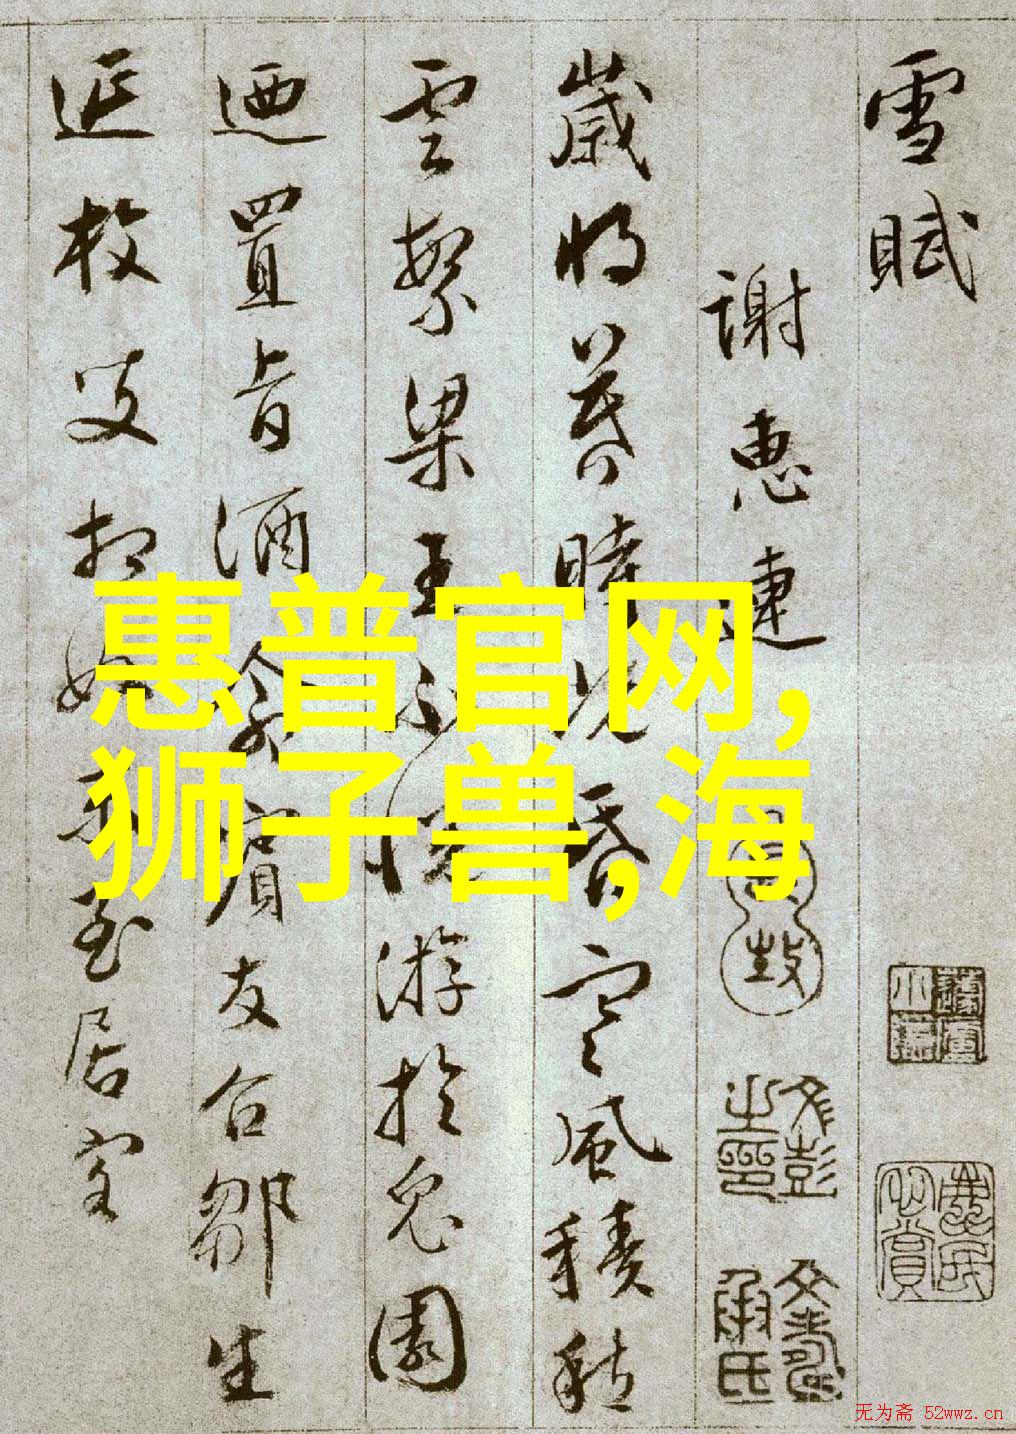 雪賦
謝惠連
歲將暮時既昏寒風積愁
雲繁梁王不悦游於兔園
迺置旨酒命賓友召鄒生
延枚叟相如末至居客
惠普官网,
狮子兽,海
无为斋 52wwz.cn